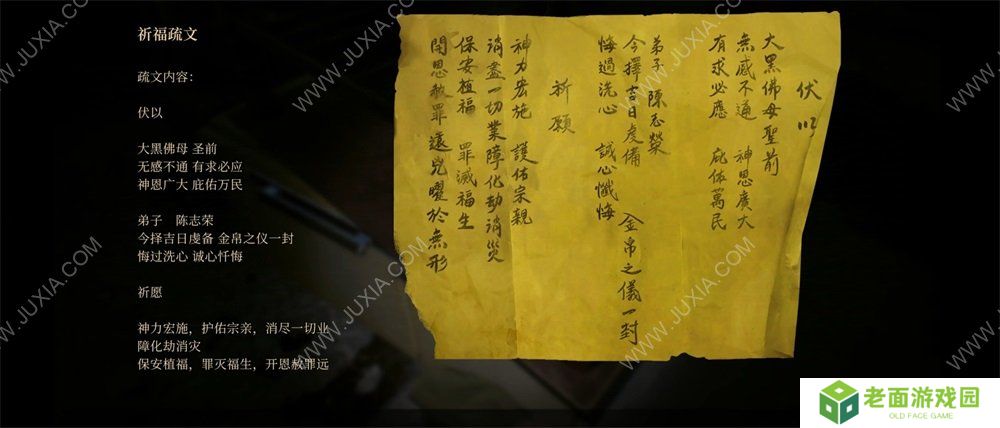 祈福疏文
疏文内容：
伏以
大黑佛母 圣前
无感不通 有求必应
神恩广大 庇佑万民
弟子 陈志荣
今择吉日虔备 金帛之仪一封
悔过洗心 诚心忏悔
祈愿
神力宏施，护佑宗亲，消尽一切业
障化劫消灾
保安植福，罪灭福生，开恩赦罪远
伏以
大黑佛母聖前
無感不通 神恩廣大
有求必應 庇佑萬民
弟子 陳志榮
今擇吉日虔備 金帛之儀一封
悔過洗心 誠心懺悔
祈願
神力宏施 護佑宗親
消盡一切業障化劫消災
保安植福 罪滅福生
開恩赦罪遠兇曜於無形
WWW.JUXIA.COM
WWW.JUXIA.COM
WWW.JUXIA.COM
WWW.JUXIA.COM
WWW.JUXIA.COM
WWW.JUXIA.COM
老面游戏园
OLD FACE GAME